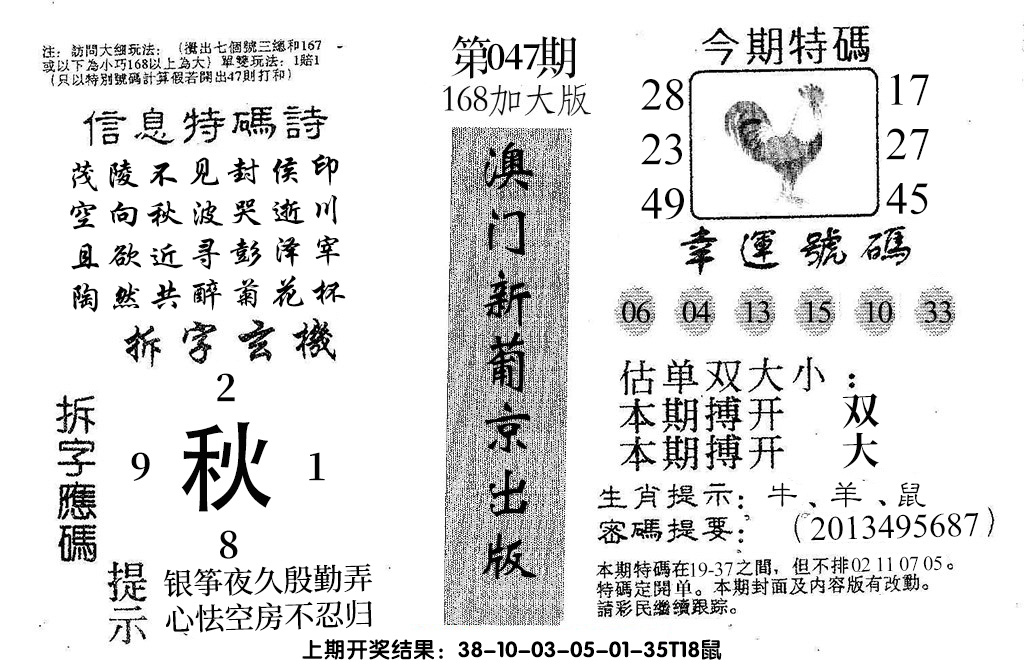 注：訪問大细玩法：（攪出七個號三總和167
或以下為小巧168以上為大）單雙玩法：1賠1
（只以特別號碼計算假若開出47則打和）
信息特碼詩
茂陵不见封侯印
空向秋波哭逝川
且欲近寻彭泽宰
陶然共醉菊花杯
拆字玄機
拆字應碼
2
9 秋 1
8
提示
银筝夜久殷勤弄
心怯空房不忍归
第047期
168加大版
澳门新葡京出版
今期特碼
28 17
23 27
49 45
幸運號碼
06 04 13 15 10 33
估单双大小：
本期搏开 双
本期搏开 大
生肖提示：牛、羊、鼠
密碼提要：（2013495687）
本期特碼在19-37之間，但不排02 11 07 05。
特碼定開单。本期封面及内容版有改動。
請彩民繼續跟踪。
上期开奖结果：38-10-03-05-01-35T18鼠